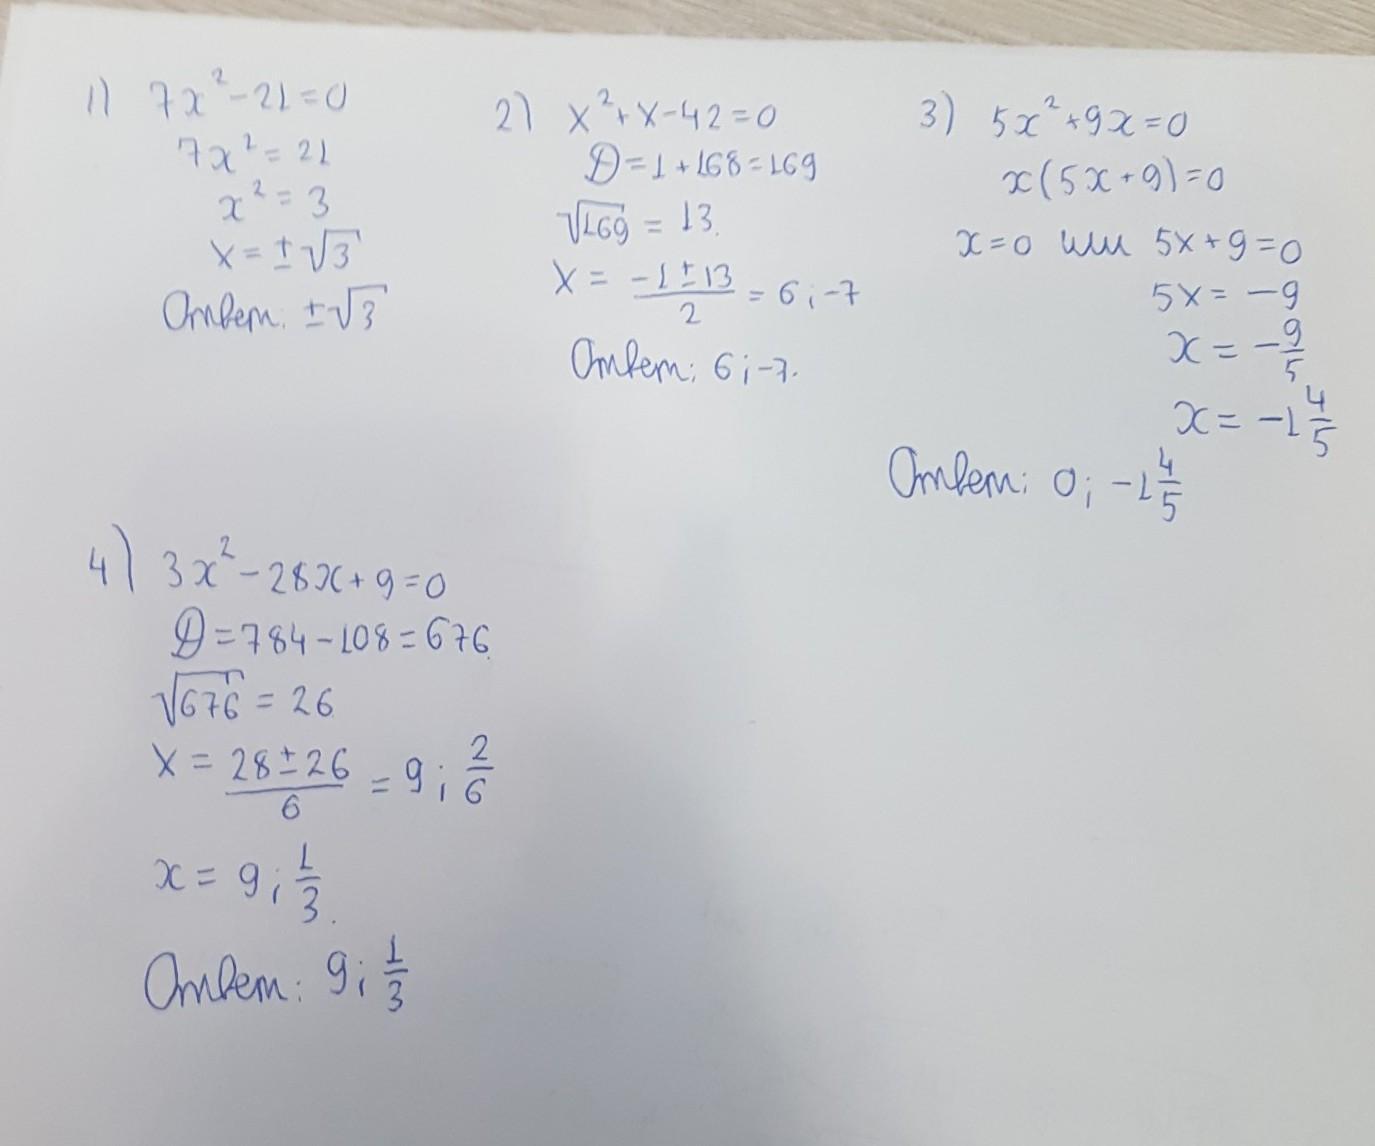 1) 7x² - 21 = 0
7x² = 21
x² = 3
x = ± √3
Ответ: ± √3
2) x² + x - 42 = 0
D = 1 + 168 = 169
√169 = 13.
x = (-1 ± 13)/2 = 6; -7
Ответ: 6; -7.
3) 5x² + 9x = 0
x(5x + 9) = 0
x = 0 или 5x + 9 = 0
5x = -9
x = -9/5
x = -1 4/5
Ответ: 0; -1 4/5
4) 3x² - 28x + 9 = 0
D = 784 - 108 = 676
√676 = 26
x = (28 ± 26)/6 = 9; 2/6
x = 9; 1/3.
Ответ: 9; 1/3